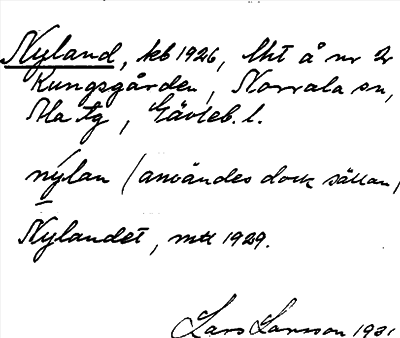 Nyland, keb 1926, lht å nr 2
Kungsgården, Norrala sn,
Ala tg, Gävleb. l.
nýlan (användes dock sällan)
Nylandet, mtl 1929.
Lars Larsson 1931